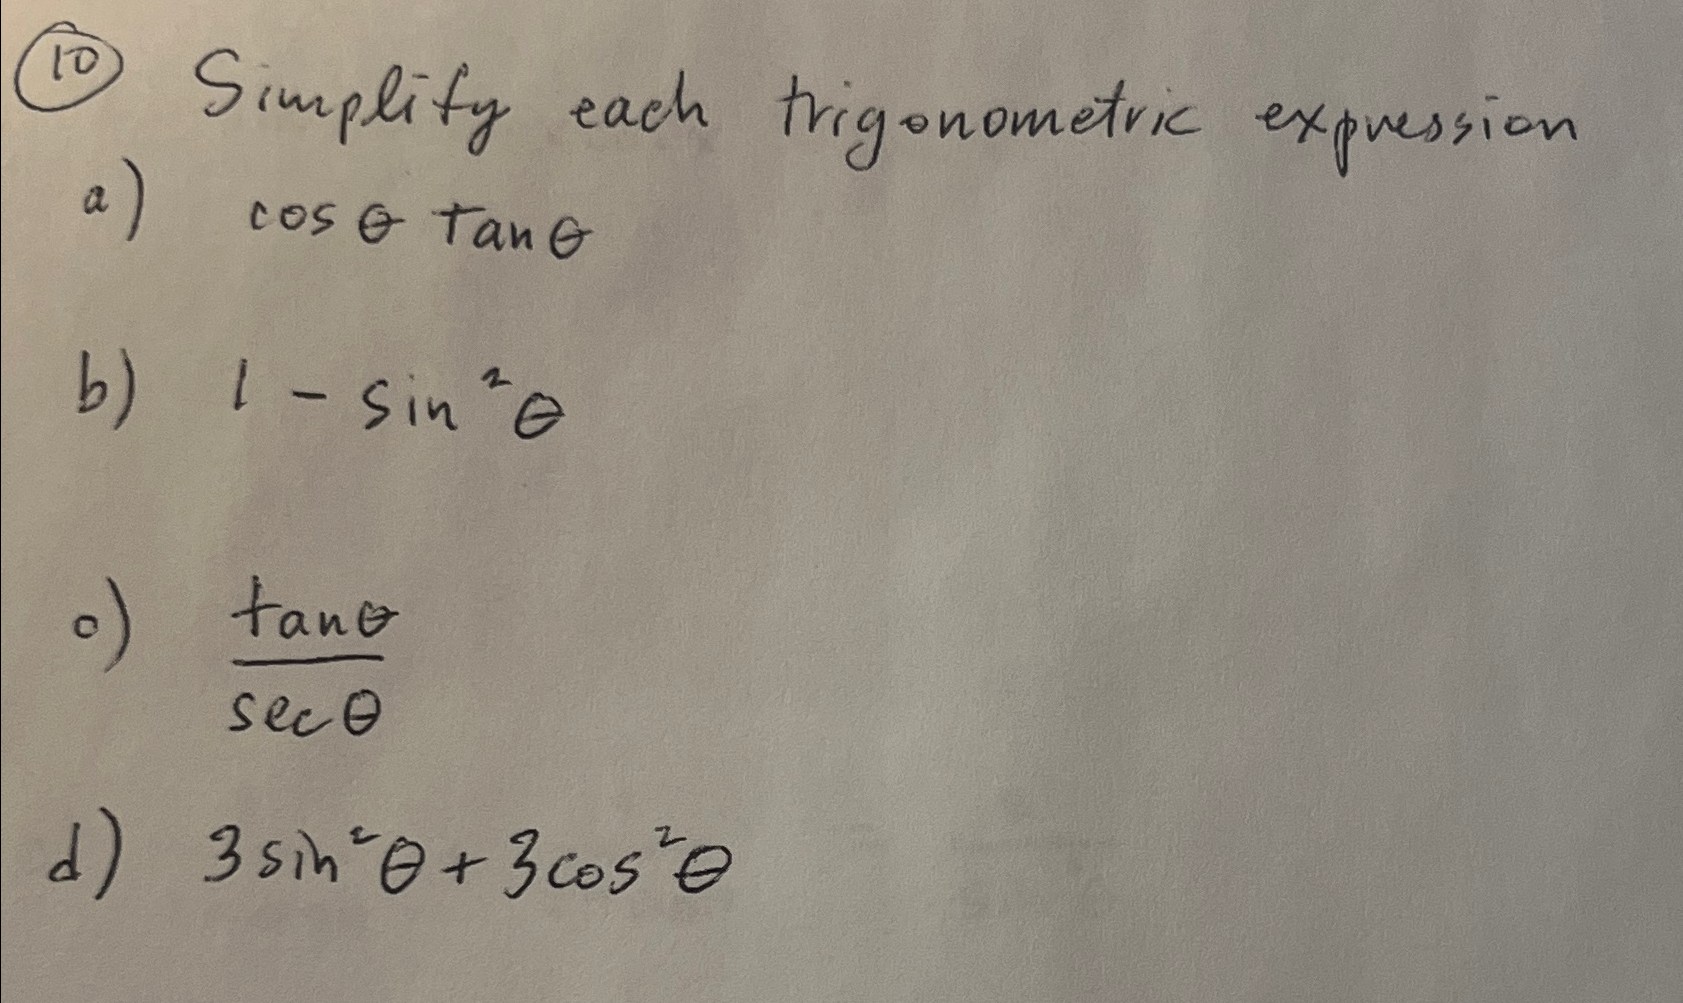 10 Simplify each trigonometric expression
a) cos θ tan θ
b) 1 - sin²θ
c) tanθ
secθ
d) 3sin²θ + 3cos²θ